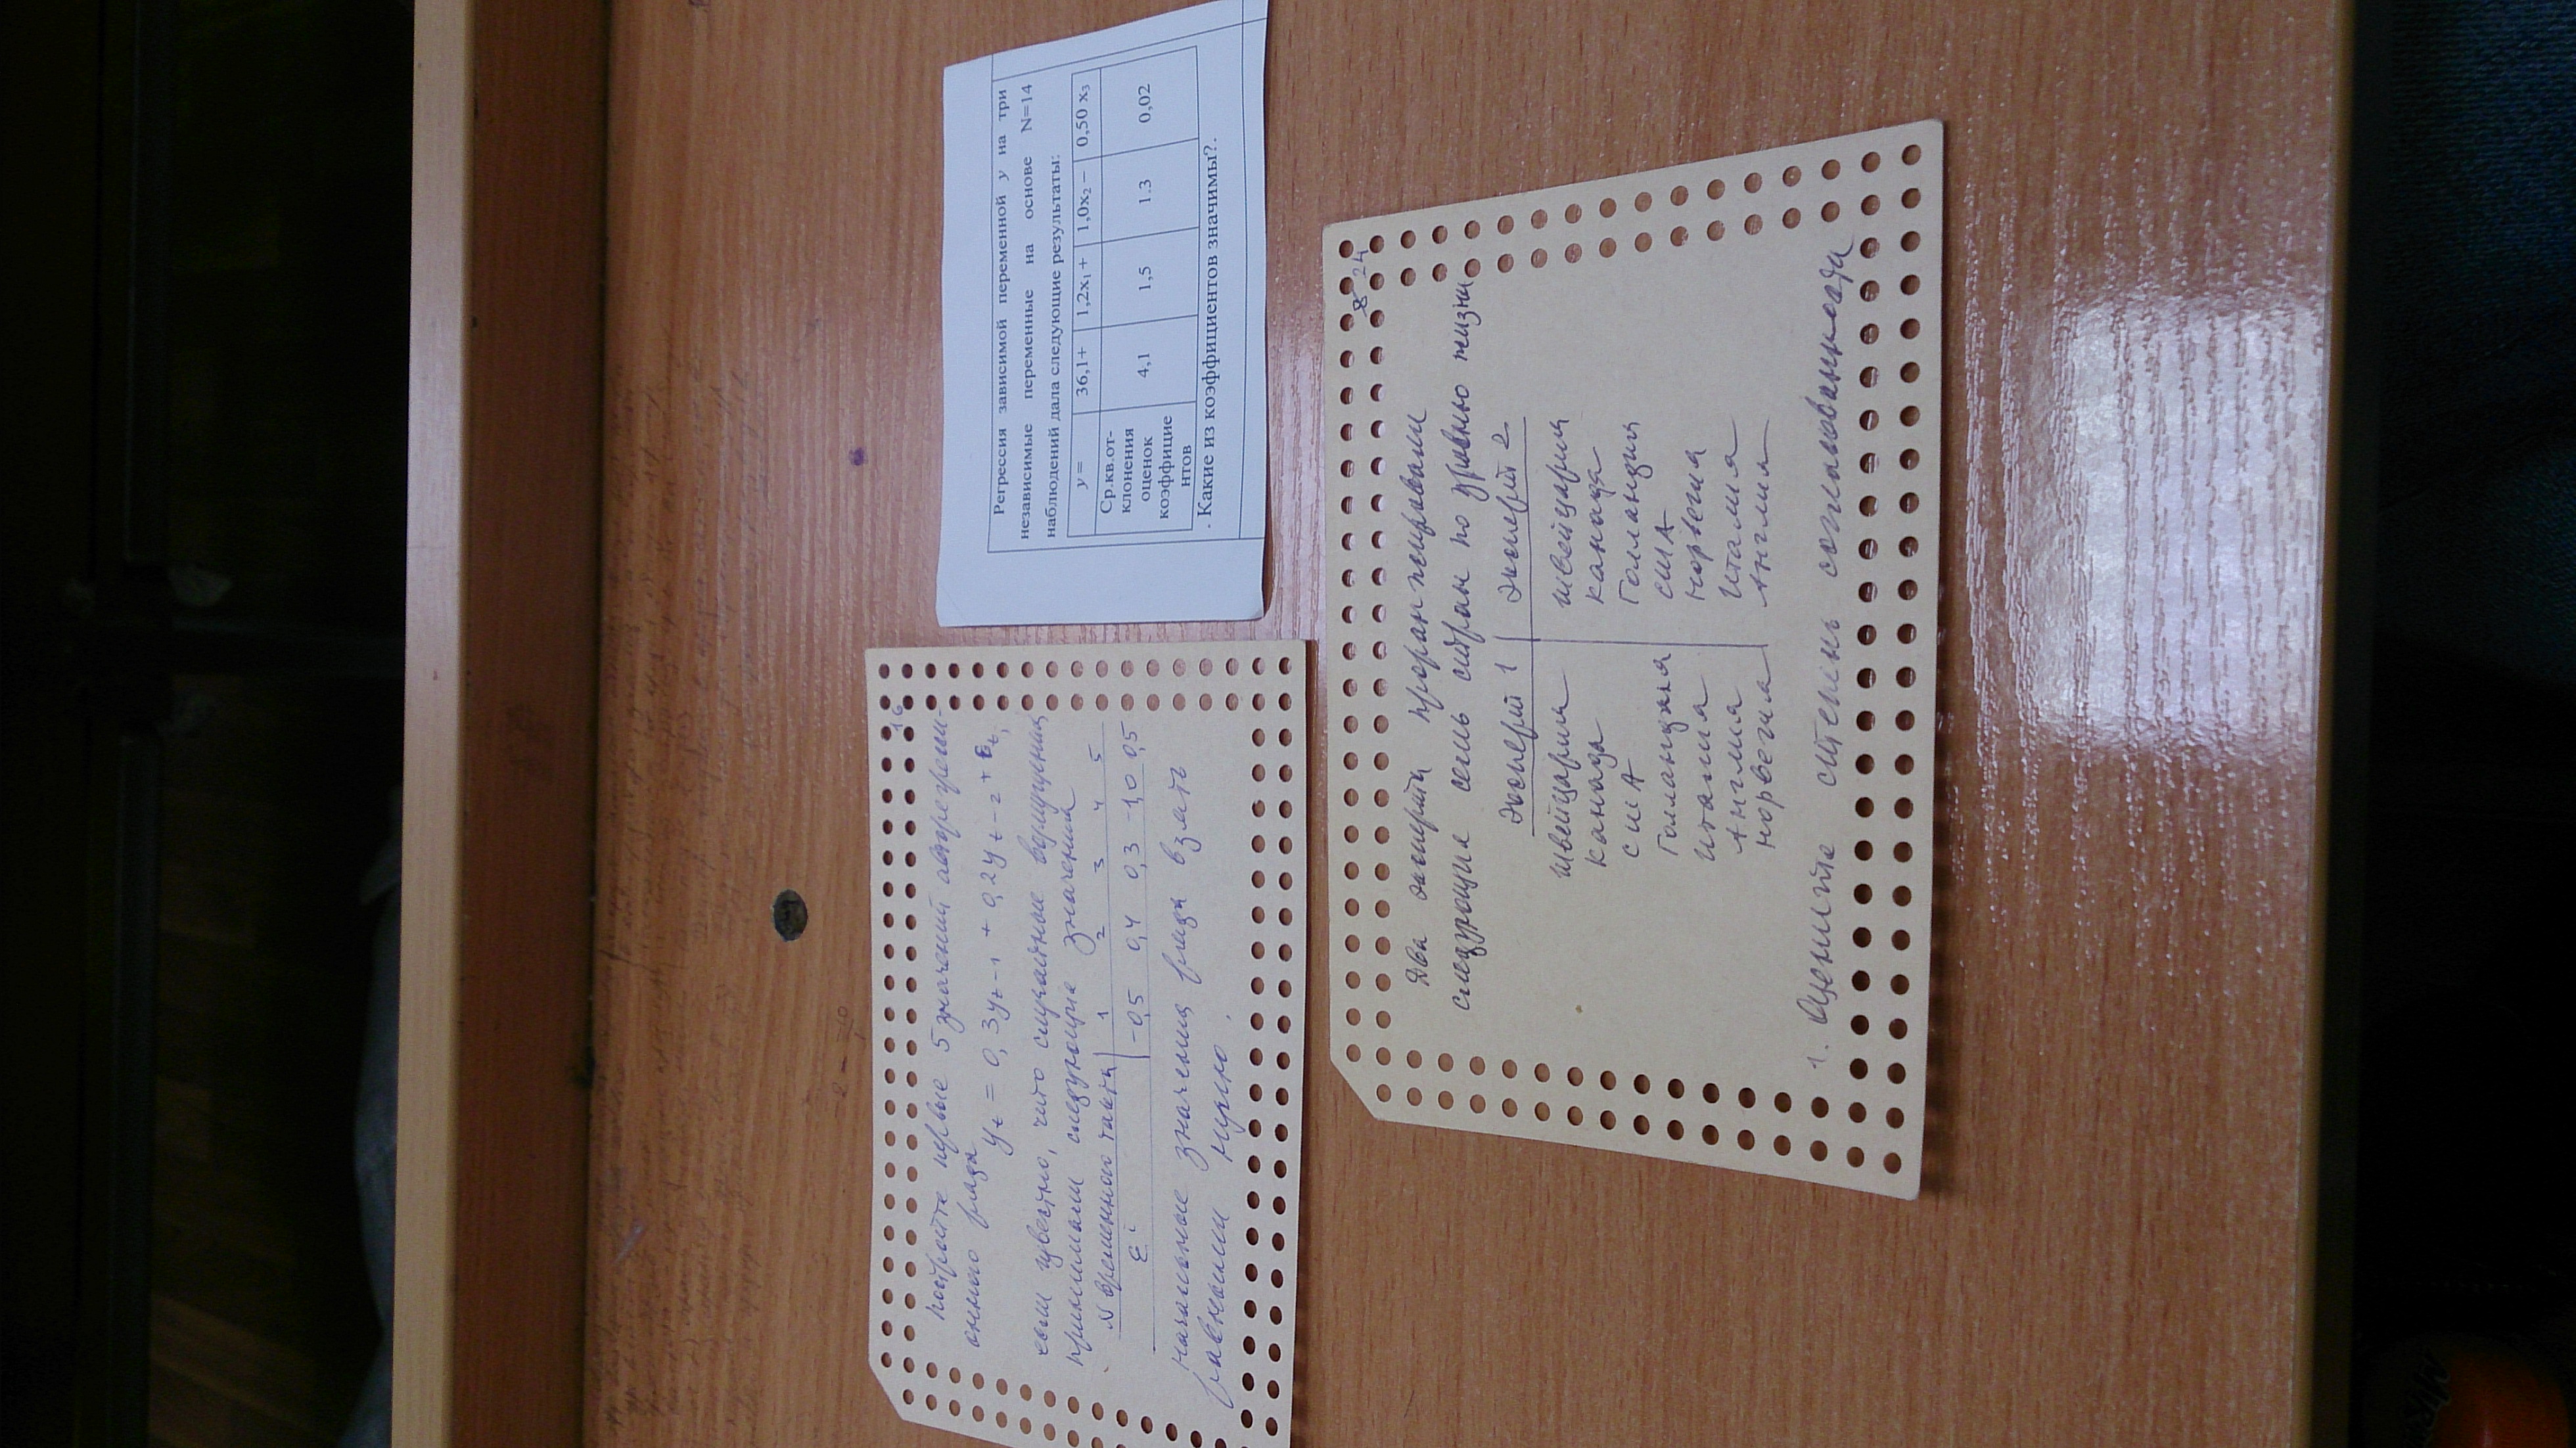 16
постройте первые 5 значений авторегресси-
онного ряда
yt = 0,3yt-1 + 0,2yt-2 + εt,
если известно, что случайные возмущения
принимали следующие значения
N временного такта 1 2 3 4 5
εi -0,5 0,4 0,3 -1,0 0,5
Начальные значения ряда взять
равными нулю.
Регрессия зависимой переменной y на три
независимые переменные на основе N=14
наблюдений дала следующие результаты:
y = 36,1+ 1,2x₁ + 1,0x₂ − 0,50 x₃
Ср.кв.от-
клонения
оценок
коэффицие
нтов
4,1 1,5 1.3 0,02
. Какие из коэффициентов значимы?.
24
Два эксперта проранжировали
следующие семь стран по уровню жизни
Эксперт 1 Эксперт 2
Швейцария Швейцария
Канада Канада
США Голландия
Голландия США
Италия Норвегия
Англия Италия
Норвегия Англия
1. Оцените степень согласованности